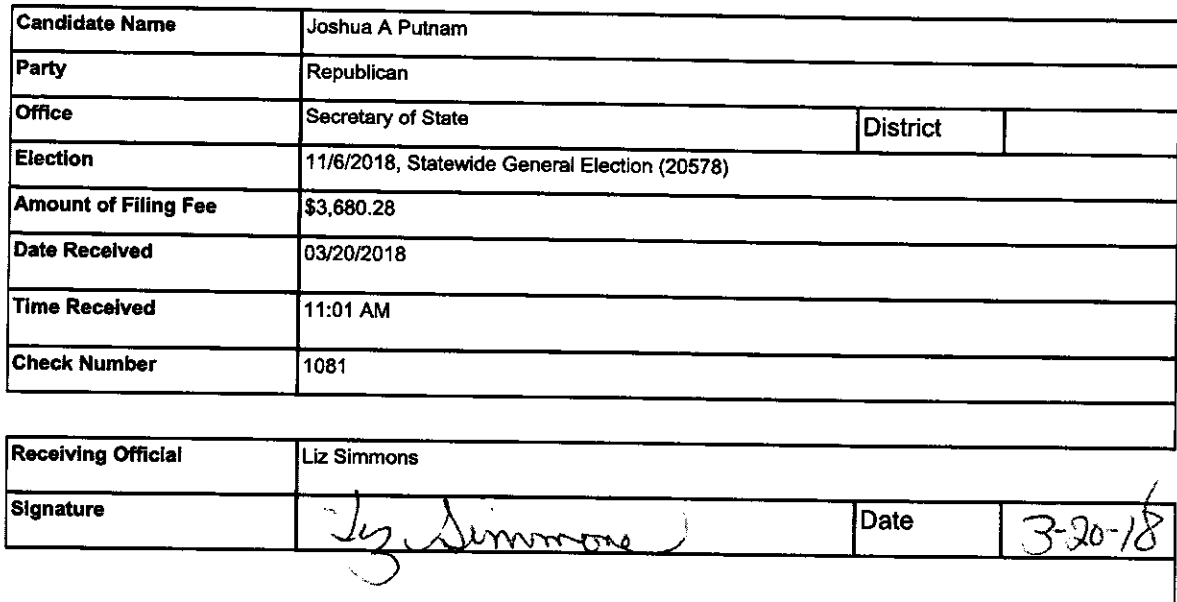 Candidate Name Joshua A Putnam
Party Republican
Office Secretary of State District
Election 11/6/2018, Statewide General Election (20578)
Amount of Filing Fee $3,680.28
Date Received 03/20/2018
Time Received 11:01 AM
Check Number 1081
Receiving Official Liz Simmons
Signature Liz Simmons Date 3-20-18